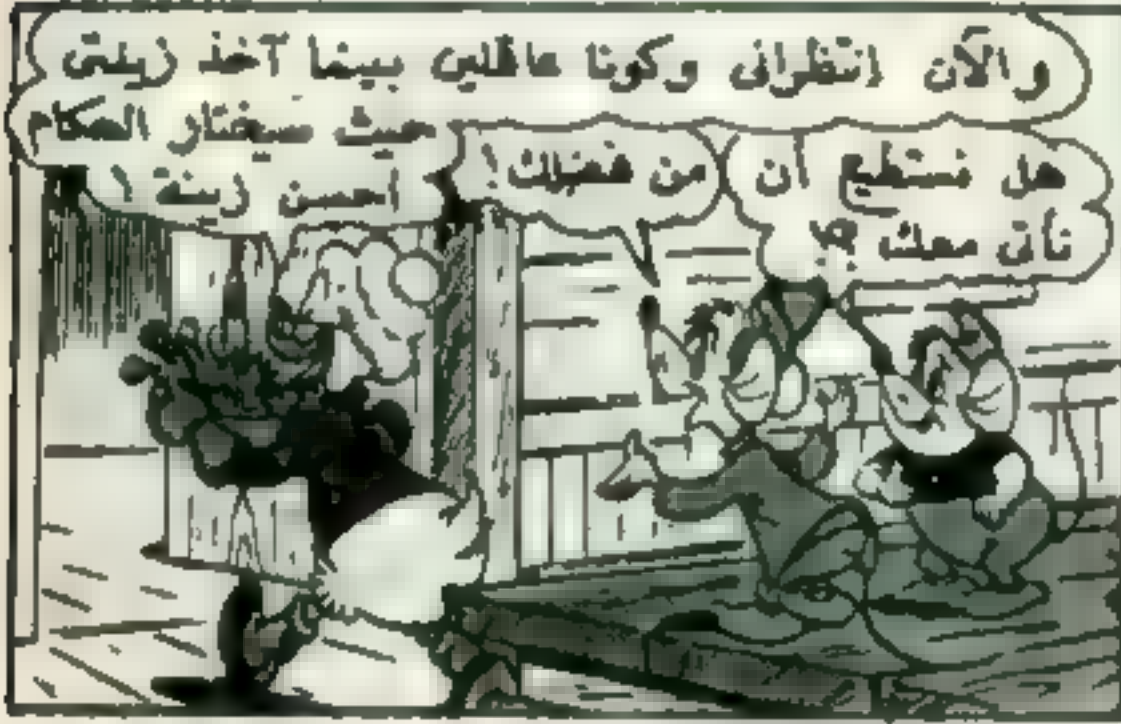 والآن انتظرانى وكونا عاقلين بينما آخذ زينتى
حيث سيختار الحكام
أحسن زينة !
من فضلك !
هل نستطيع أن
نأتى معك ؟!